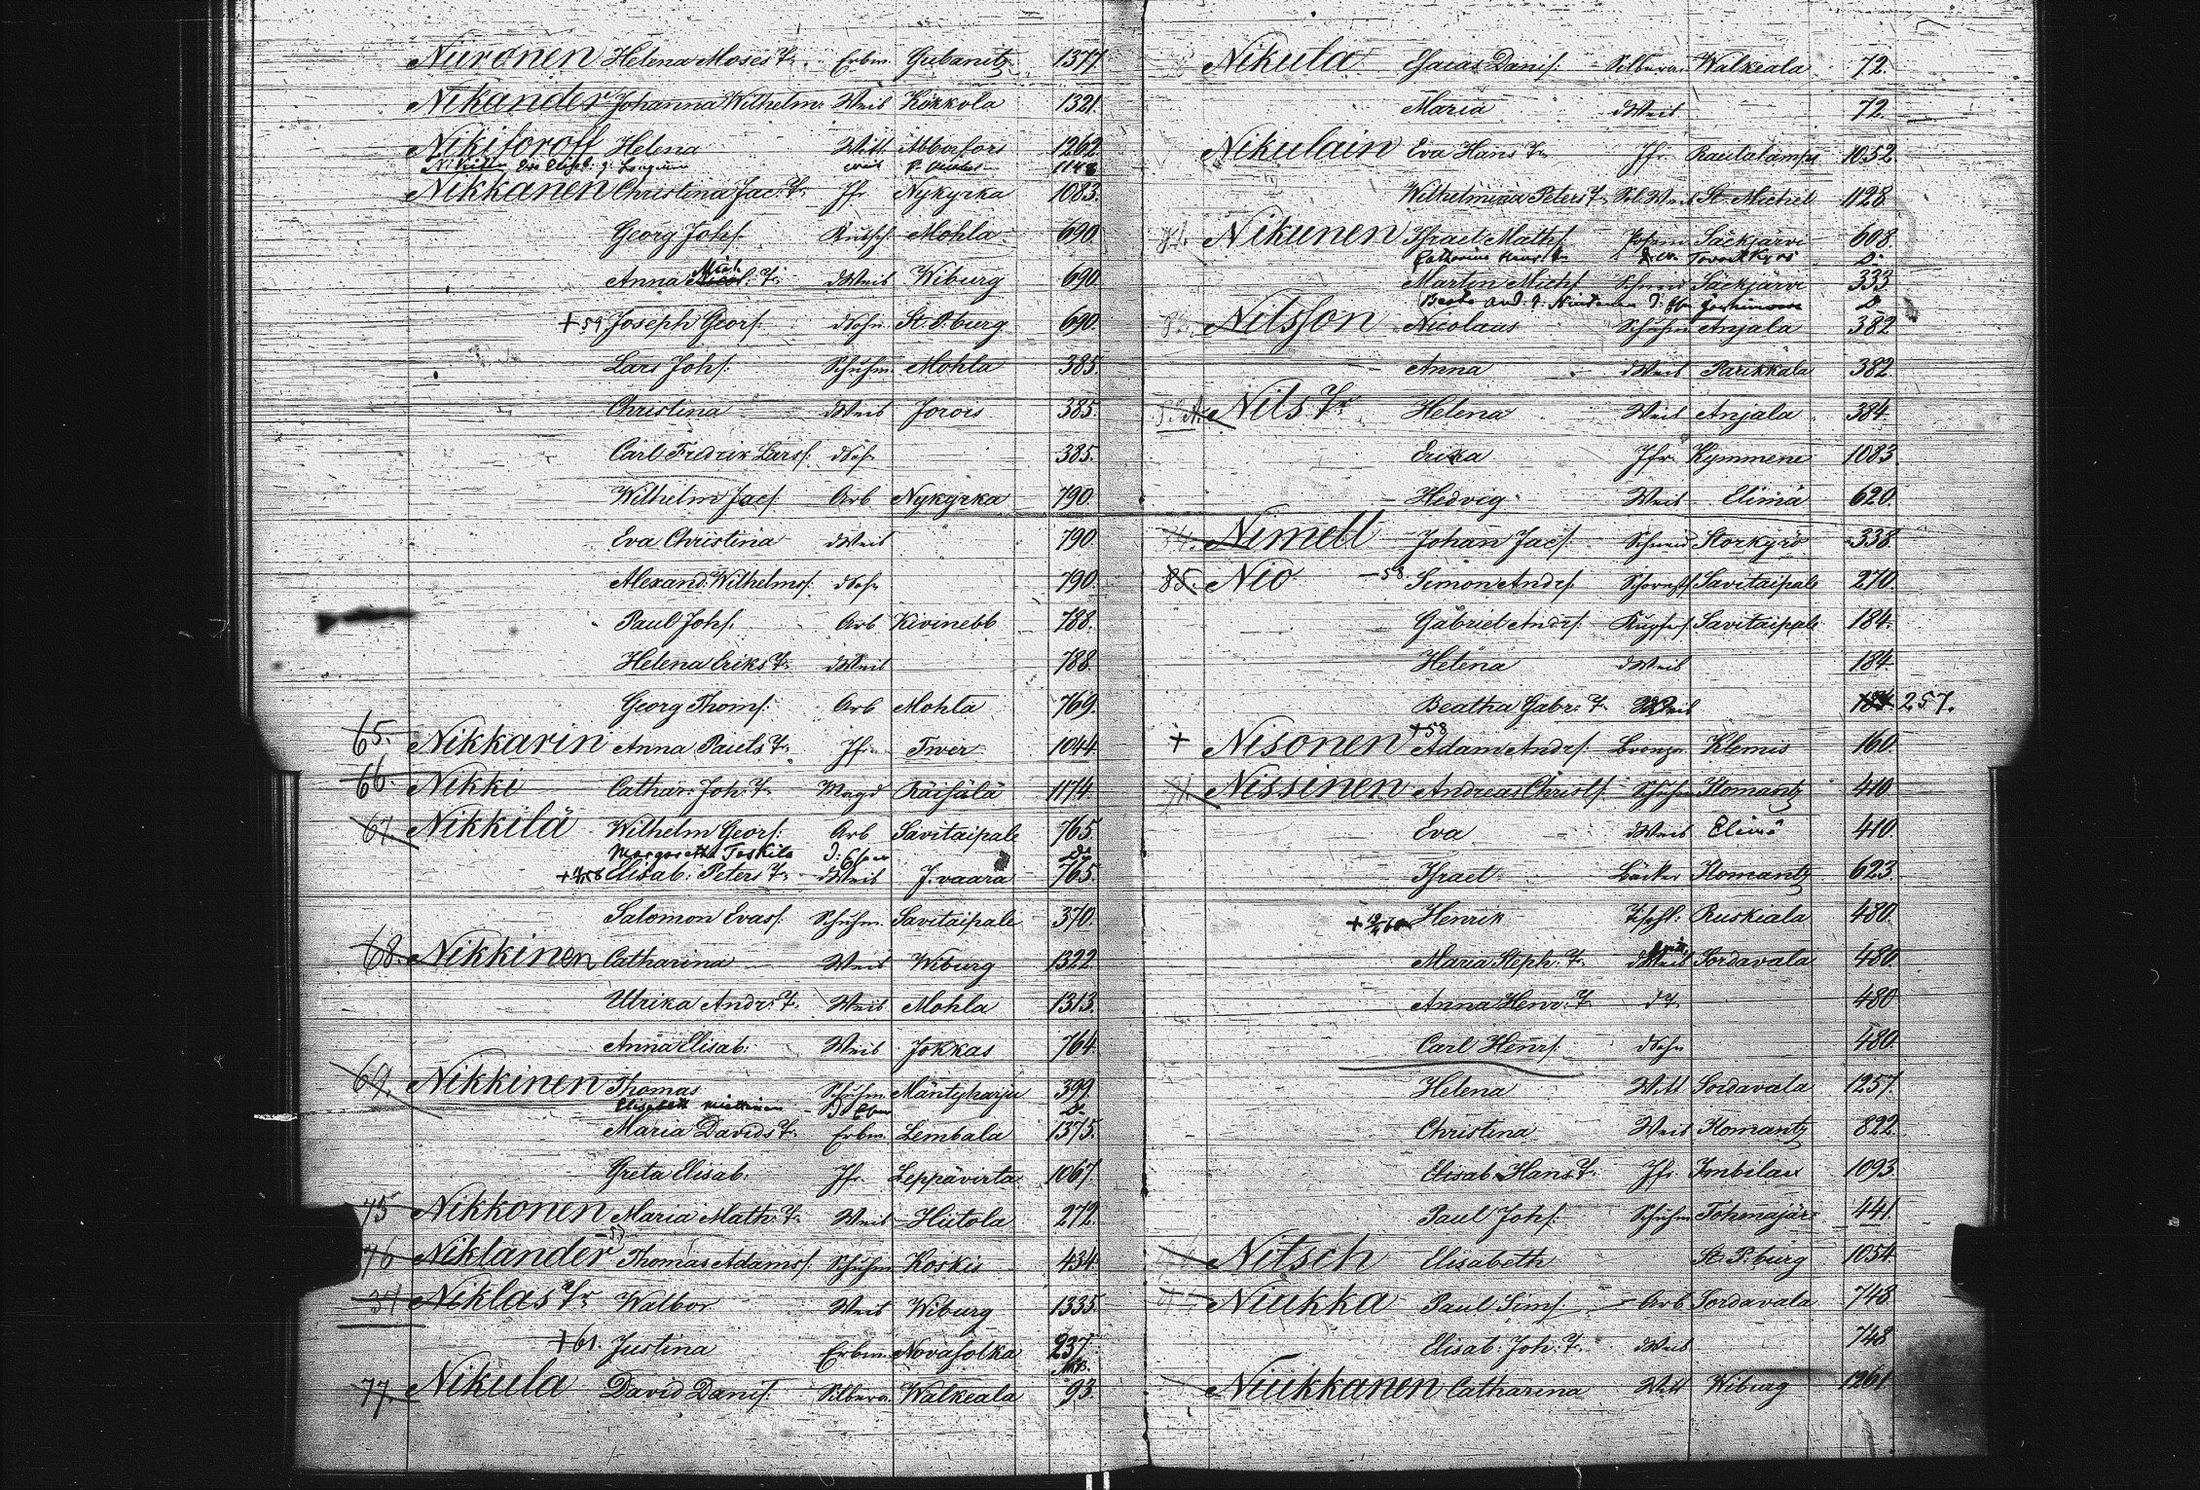 Niironen Helena Moses Tr. Erbm. Gubanitz 1377
Nikander Johanna Wilhelm: Weib Kökkola 1321.
Nikiforoff Helena Witt. Abborfors 1262
Nikkanen Christina Jac: Tr. Jfr Nykyrka 1083.
Georg Johs. Kutsch. Mohla 690.
Anna Mich. Tr. dWeib Wiburg 690.
+59 Joseph Geors. dSohn St. P. burg 690.
Lars Johs. Schuhm. Mohla 385.
Christina dWeib Jorois 385.
Carl Fredrik Larss. dSohn 385.
Wilhelm Jacs. Arb Nykyrka 790.
Eva Christina dWeib 790.
Alexand. Wilhelms. dSohn 790.
Paul Johs. Arb Kivinebb 788.
Helena Eriks Tr. dWeib 788.
Georg Thoms. Arb Mohla 769.
65. Nikkarin Anna Pauls Tr. Jfr Twer 1044.
66. Nikki Cathar: Joh. Tr. Magd Räisälä 1174.
67. Nikkilä Wilhelm Geors. Arb Savitaipale 765.
Margaretha Taskila D: Ehew Do
Elisab: Peters Tr. dWeib J.vaara 765.
Salomon Evass. Schuhm. Savitaipale 370.
68. Nikkinen Catharina Weib Wiburg 1322.
Ulrika Andr. Tr. Weib Mohla 1313.
Anna Elisab: Weib Jokkas 764.
69. Nikkinen Thomas Schuhm Mäntyharju 399.
Elisabeth Miettinen Do
Maria Davids Tr. Erbm. Lembala 1375.
Greta Elisab: Jfr. Leppävirta 1067.
75 Nikkonen Maria Math. Tr. Weib Hiitola 272.
76 Niklander Thomas Adams. Schuhm Koskis 434.
Niklas Tr Walbor Weib Wiburg 1335.
+61. Justina Erbm. Novasolka 237.
77. Nikula David Danis. Silbera. Walkeala 93.
Nikula Esaias Danis. Silbera. Walkeala 72.
Maria dWeib 72.
Nikulain Eva Hans Tr. Jfr. Rautalampi 1052.
Wilhelmina Peters Tr. Sol. Weib St. Michel 1128
Nikunen Israel Maths. Säckjärvi 608.
Martin Michs. Schneid Säckjärvi 333
Nilsson Nicolaus Schuhm Anjala 382
Anna dWeib Parikkala 382
Nils Tr Helena Weib Anjala 384.
Erika Jfr. Kymmene 1083.
Hedvig Weib Elimä 620.
Nimell Johan Jacs. Schneid Storkyro 338.
85. Nio -58 Simon Andrs. Schornstf Savitaipale 270.
Gabriel Andrs. Kupfes. Savitaipale 184.
Helena dWeib 184.
Beatha Gabr: Tr. Weib 184 257.
+ Nisonen +58 Adam Andrs. Bronze. Klemis 160.
Nissinen Andreas Christs. Schuhm Ilomantz 410
Eva dWeib Elimä 410.
Israel Bäcker Ilomantz 623.
Henrik Tischl. Ruskeala 480.
Maria Steph. Tr. dWeib Sordavala 480.
Anna Henr. Tr. dTr. 480
Carl Henrs. dSohn 480.
Helena Witt Sordavala 1257.
Christina Weib Ilomantz 822.
Elisab. Hans Tr. Jfr. Imbilax 1093.
Paul Johs. Schuhm Tohmajärvi 441.
Nitsch Elisabeth St. P. burg 1054.
Niukka Paul Sims. Arb Sordavala 748.
Elisab. Joh. Tr. dWeib 748
Niukkanen Catharina Witt Wiburg 1261